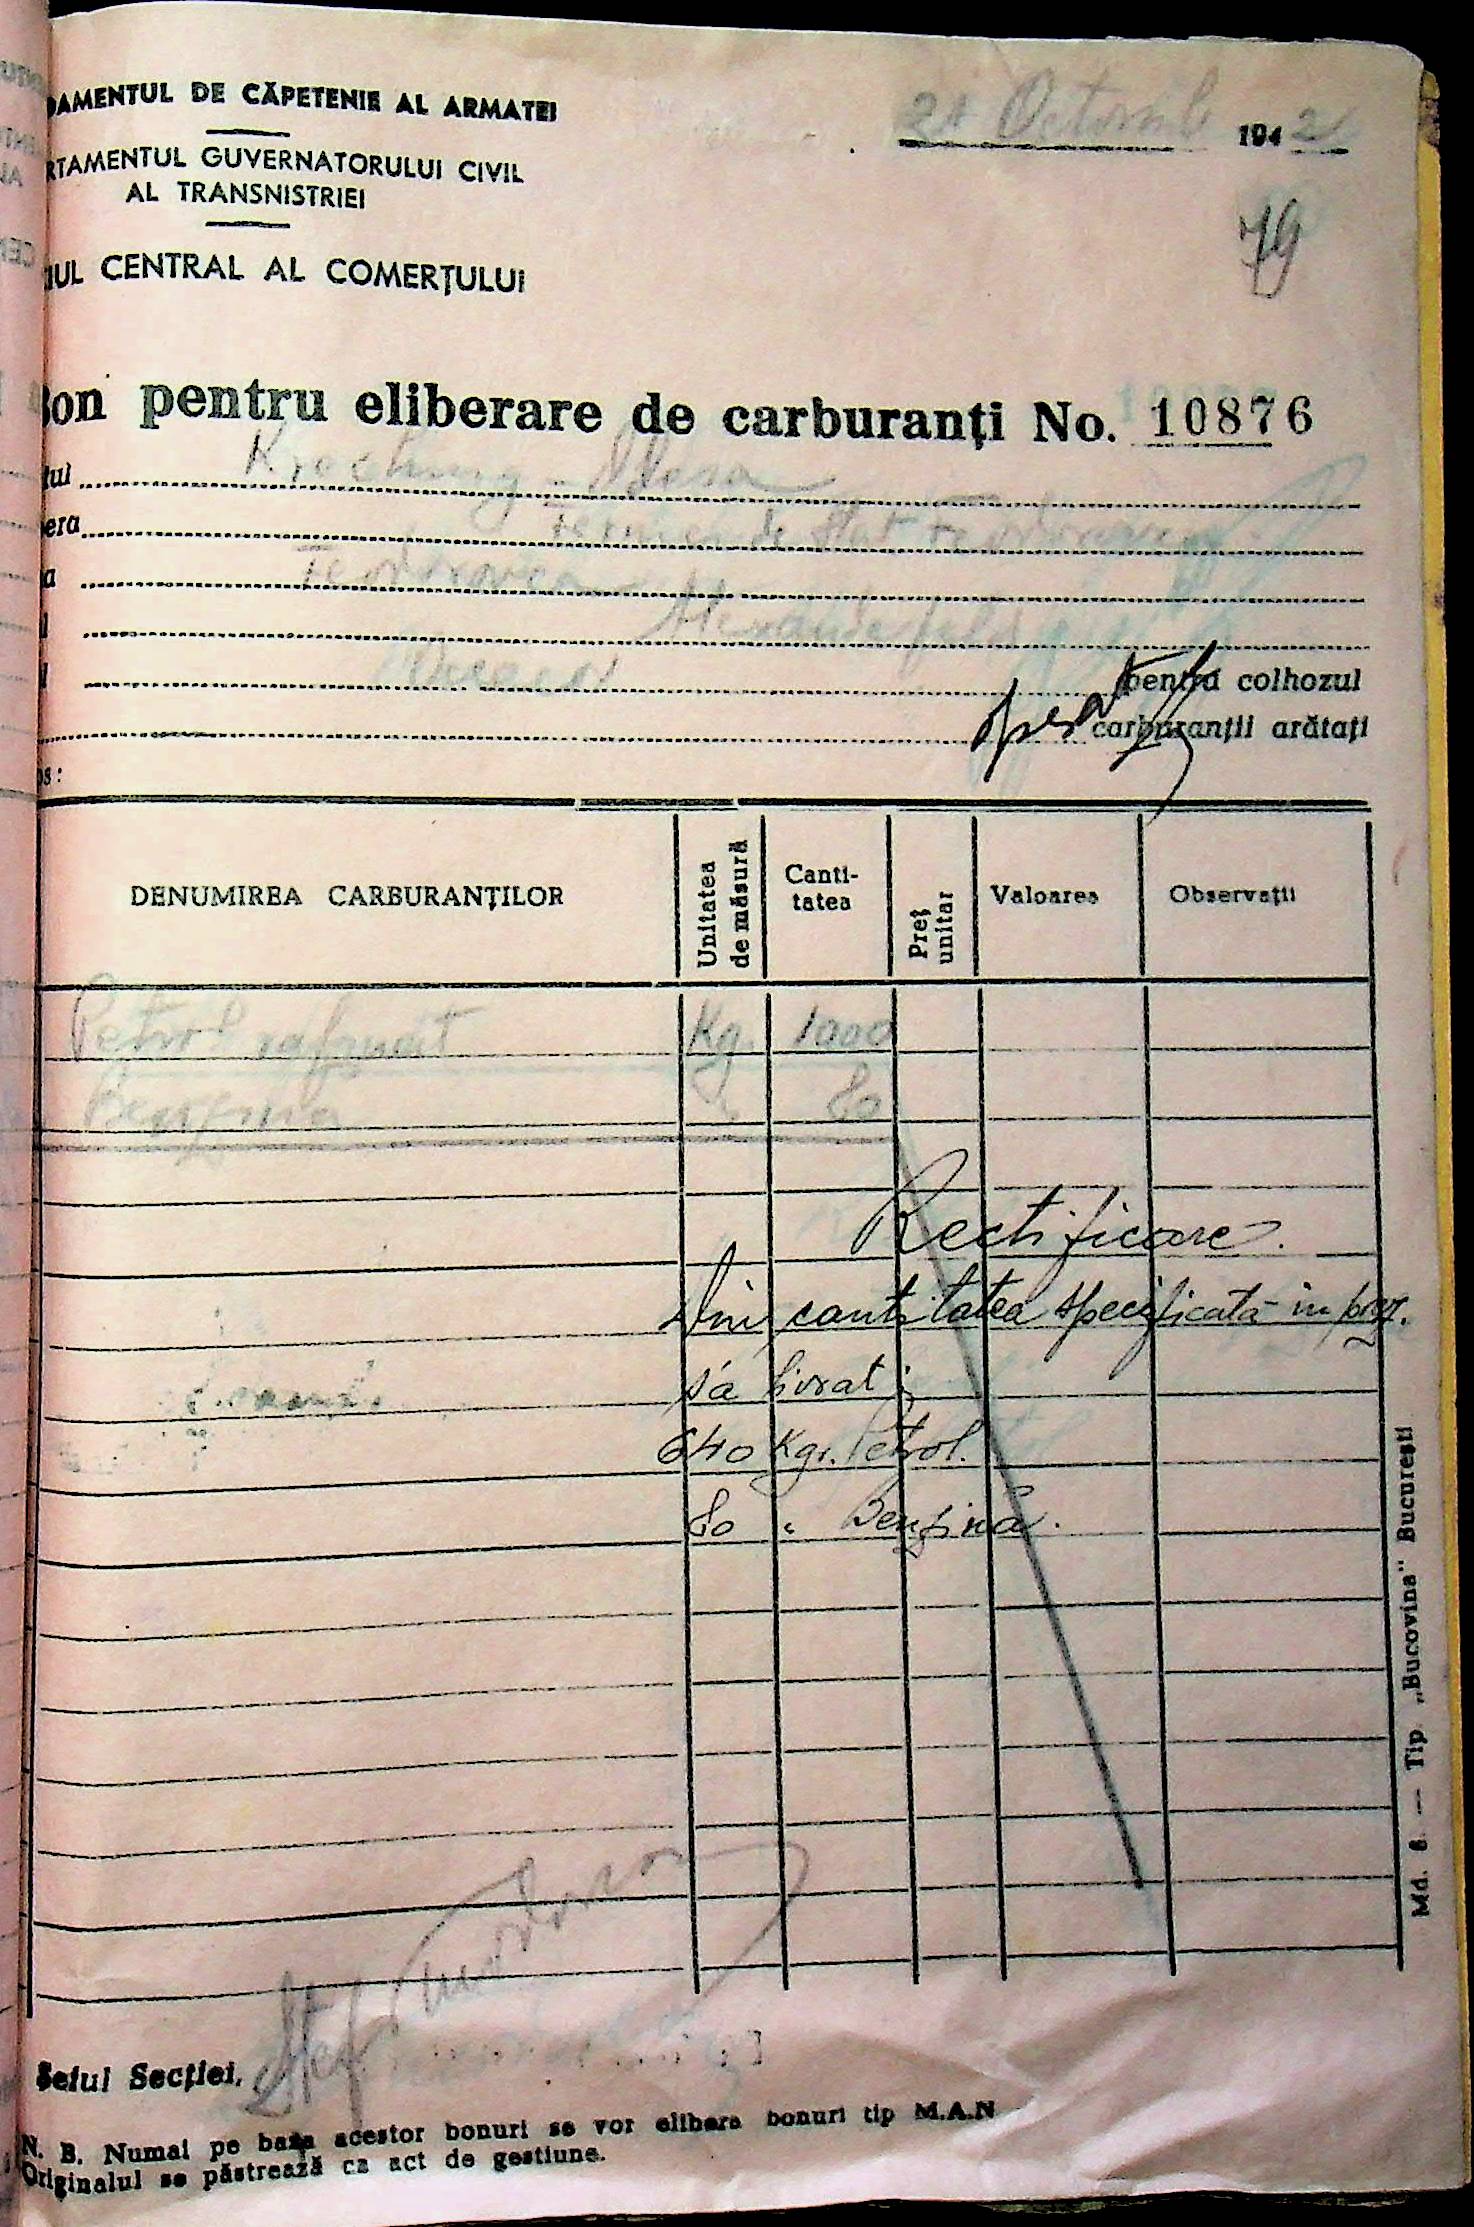 DAMENTUL DE CĂPETENIE AL ARMATEI
21 Octombrie 1942
RTAMENTUL GUVERNATORULUI CIVIL
AL TRANSNISTRIEI
79
IUL CENTRAL AL COMERȚULUI
Bon pentru eliberare de carburanți No. 10876
tul
era Ferma de Stat
a
l
l pentru colhozul
carburanții arătați
os:
DENUMIREA CARBURANȚILOR Unitatea de măsură Canti-tatea Preț unitar Valoarea Observații
Petrol rafinat Kg. 1000
Benzina " 80
Rectificare.
Din cantitatea specificată in prez.
s'a livrat :
640 Kgr. Petrol.
80 " Benzină.
Șeful Secției,
N. B. Numai pe baza acestor bonuri se vor elibera bonuri tip M.A.N
Originalul se păstrează ca act de gestiune.
Md. 8. — Tip. „Bucovina" București